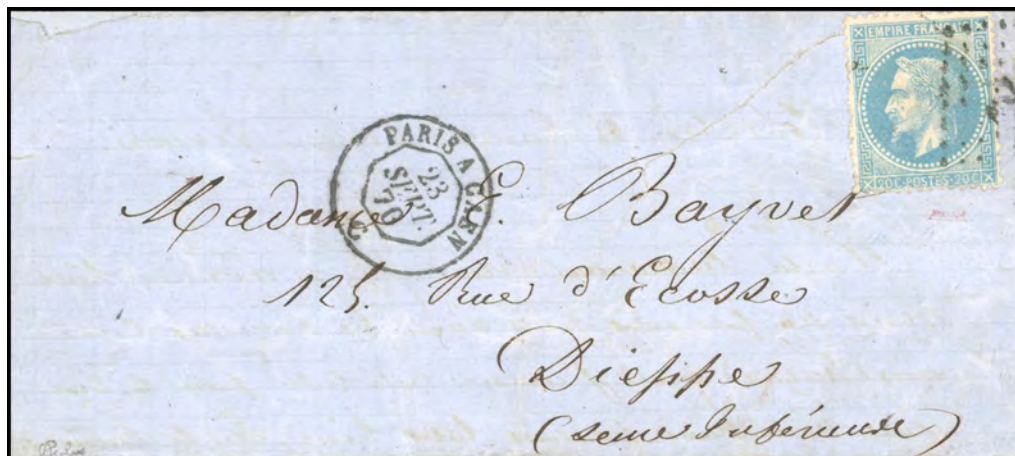 EMPIRE FRANÇAIS
20 C. POSTES 20 C.
PARIS A CAEN
23
SEPT.
70
Madame E. Bayvet
125. Rue d'Ecosse
Dieppe
(Seine Inférieure)